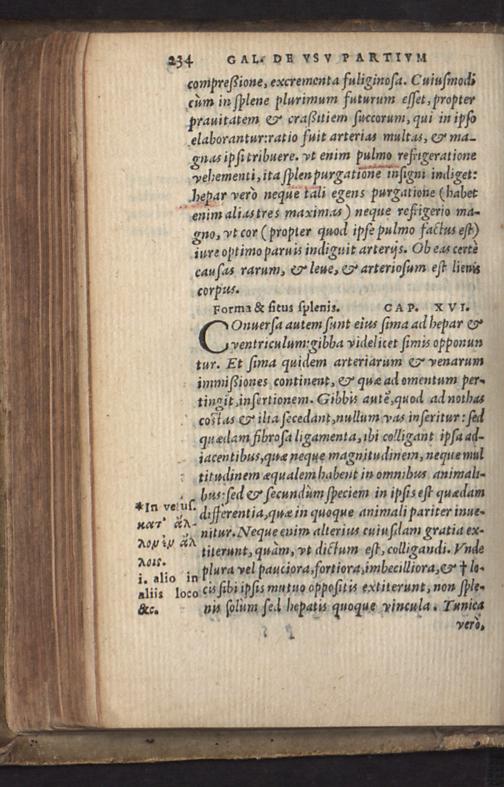 234 GAL. DE VSV PARTIVM
compreßione, excrementa fuliginosa. Cuiusmodi
cùm in splene plurimum futurum esset, propter
prauitatem & craßitiem succorum, qui in ipso
elaborantur: ratio fuit arterias multas, & ma-
gnas ipsi tribuere. vt enim pulmo refrigeratione
vehementi, ita splen purgatione insigni indiget:
hepar verò neque tali egens purgatione (habet
enim alias tres maximas) neque refrigerio ma-
gno, vt cor (propter quod ipse pulmo factus est)
iure optimo paruis indiguit arterijs. Ob eas certè
causas rarum, & leue, & arteriosum est lienis
corpus.
Forma & situs splenis. CAP. XVI.
COnuersa autem sunt eius sima ad hepar &
ventriculum: gibba videlicet simis opponun
tur. Et sima quidem arteriarum & venarum
immißiones continent, & quæ ad omentum per-
tingit, insertionem. Gibbis autē, quod ad nothas
costas & ilia secedant, nullum vas inseritur: sed
quædam fibrosa ligamenta, ibi colligant ipsa ad-
iacentibus, quæ neque magnitudinem, neque mul
titudinem æqualem habent in omnibus animali-
bus: sed & secundùm speciem in ipsis est quædam
differentia, quæ in quoque animali pariter inue-
nitur. Neque enim alterius cuiusdam gratia ex-
titerunt, quàm, vt dictum est, colligandi. Vnde
plura vel pauciora, fortiora, imbecilliora, & † lo-
cis sibi ipsis mutuo oppositis extiterunt, non sple-
nis solùm sed hepatis quoque vincula. Tunica
verò,
*In vetus.
κατ' ἄλ-
λον ἐν ἄλ
λοις.
i. alio in
aliis loco
&c.